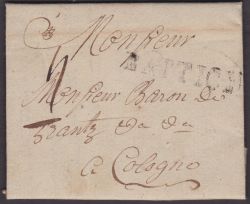 Monsieur
Monsieur Baron de
Frantz
a Cologne